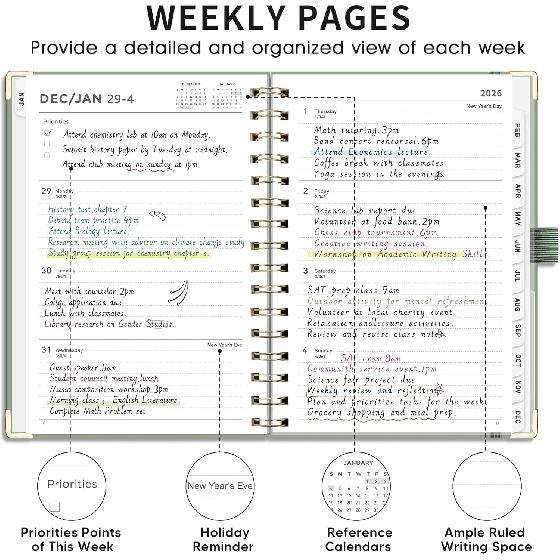 WEEKLY PAGES
Provide a detailed and organized view of each week
JAN
DEC/JAN 29-4
Priorities
Attend chemistry lab at 10am on Monday.
Submit history paper by Tuesday at midnight.
Attend club meeting on sunday at 1pm.
29 Monday
History test, chapter 7
Debate team practice 4pm
Attend Biology lecture.
Research meeting with advisor on climate change study
Study group session for chemistry chapter 2.
30 Tuesday
Meet with counselor, 2pm
College application due
Lunch with classmates.
Library research on Gender Studies.
31 Wednesday
New Year's Eve
Guest speaker 11am
Student council meeting, lunch
Music composition workshop 3pm
Morning class: English Literature
Complete Math Problem set
2026
1 Thursday
New Year's Day
Math tutoring. 3pm
Band concert rehearsal. 6pm
Attend Economics lecture.
Coffee break with classmates.
Yoga session in the evening
2 Friday
Science lab report due
Volunteer at food bank, 2pm
Chess club tournament, 6pm
Creative writing session.
Workshop on Academic Writing Skill
3 Saturday
SAT prep class, 9am
Outdoor activity for mental refreshment
Volunteer at local charity event.
Relaxation and leisure activities.
Review and revise class notes
4 Sunday
SAT exam 8am
Community service event, 1pm
Science fair project due
Weekly review and reflection
Plan and prioritize tasks for the week
Grocery shopping and meal prep.
FEB
MAR
APR
MAY
JUN
JUL
AUG
SEP
OCT
NOV
DEC
Priorities
New Year's Eve
JANUARY
S M T W T F S
1 2 3
4 5 6 7 8 9 10
11 12 13 14 15 16 17
18 19 20 21 22 23 24
25 26 27 28 29 30 31
Priorities Points
of This Week
Holiday
Reminder
Reference
Calendars
Ample Ruled
Writing Space